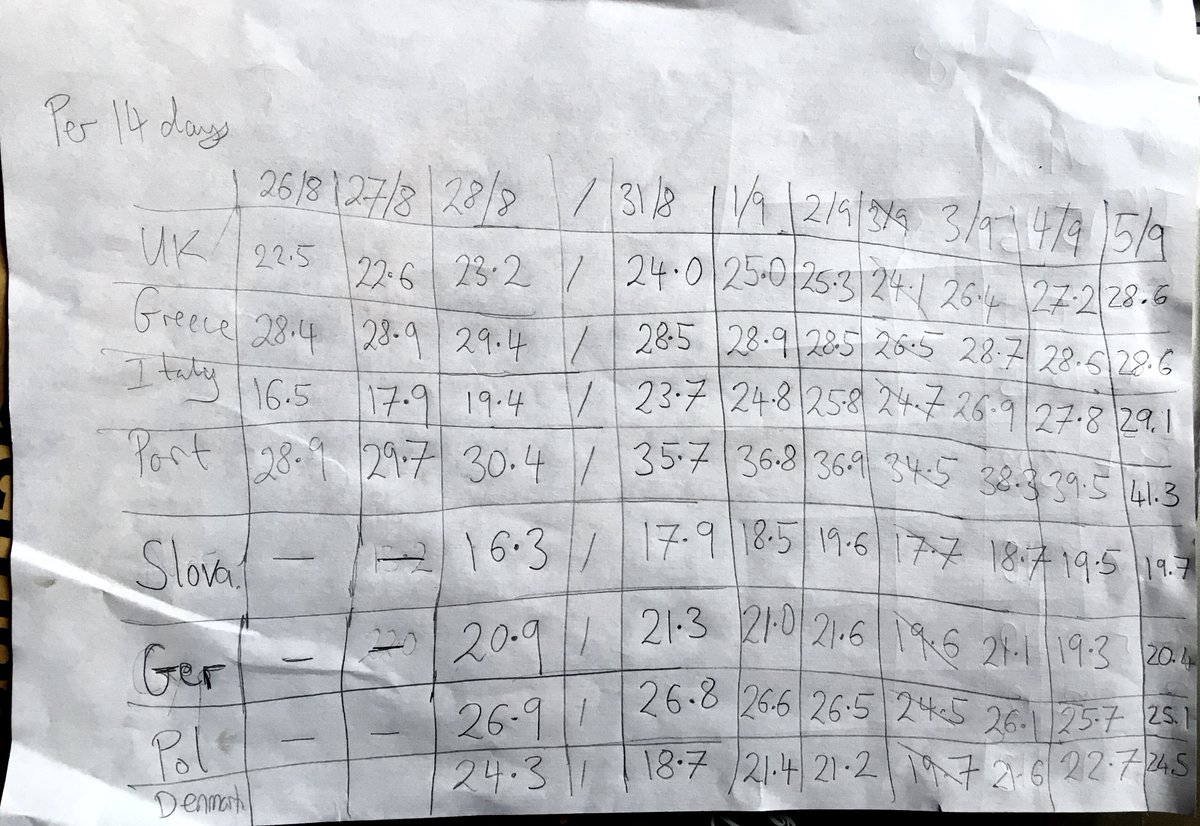 Per 14 days
26/8 27/8 28/8 / 31/8 1/9 2/9 3/9 3/9 4/9 5/9
UK 22.5 22.6 23.2 / 24.0 25.0 25.3 24.1 26.4 27.2 28.6
Greece 28.4 28.9 29.4 / 28.5 28.9 28.5 26.5 28.7 28.6 28.6
Italy 16.5 17.9 19.4 / 23.7 24.8 25.8 24.7 26.9 27.8 29.1
Port 28.9 29.7 30.4 / 35.7 36.8 36.9 34.5 38.3 39.5 41.3
Slova. — — 16.3 / 17.9 18.5 19.6 17.7 18.7 19.5 19.7
Ger — — 20.9 / 21.3 21.0 21.6 19.6 21.1 19.3 20.4
Pol — — 26.9 / 26.8 26.6 26.5 24.5 26.1 25.7 25.1
Denmark 24.3 / 18.7 21.4 21.2 19.7 21.6 22.7 24.5